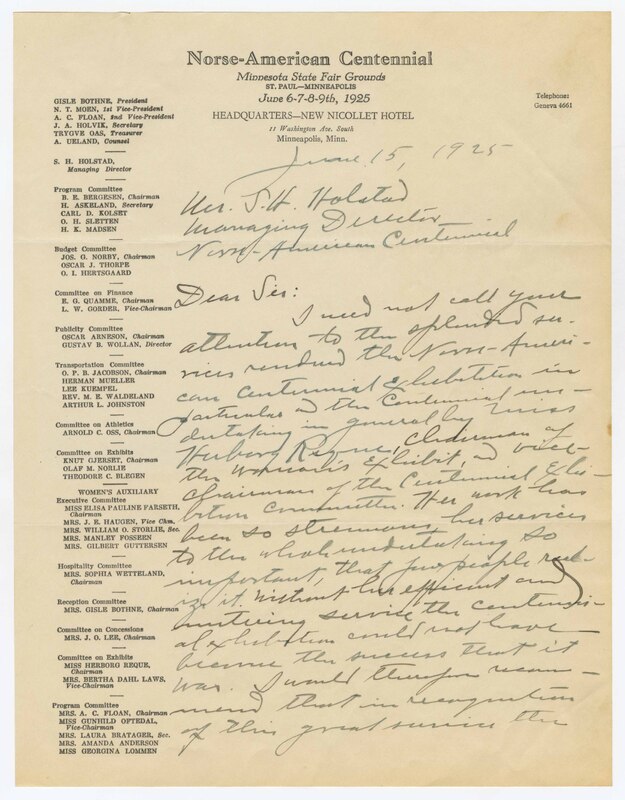 Norse-American Centennial
Minnesota State Fair Grounds
ST. PAUL—MINNEAPOLIS
June 6-7-8-9th, 1925
HEADQUARTERS—NEW NICOLLET HOTEL
11 Washington Ave. South
Minneapolis, Minn.
Telephone:
Geneva 4661
GISLE BOTHNE, President
N. T. MOEN, 1st Vice-President
A. C. FLOAN, 2nd Vice-President
J. A. HOLVIK, Secretary
TRYGVE OAS, Treasurer
A. UELAND, Counsel
S. H. HOLSTAD,
Managing Director
Program Committee
B. E. BERGESEN, Chairman
H. ASKELAND, Secretary
CARL D. KOLSET
O. H. SLETTEN
H. K. MADSEN
Budget Committee
JOS. G. NORBY, Chairman
OSCAR J. THORPE
O. I. HERTSGAARD
Committee on Finance
E. G. QUAMME, Chairman
L. W. GORDER, Vice-Chairman
Publicity Committee
OSCAR ARNESON, Chairman
GUSTAV B. WOLLAN, Director
Transportation Committee
O. P. B. JACOBSON, Chairman
HERMAN MUELLER
LEE KUEMPEL
REV. M. E. WALDELAND
ARTHUR L. JOHNSTON
Committee on Athletics
ARNOLD C. OSS, Chairman
Committee on Exhibits
KNUT GJERSET, Chairman
OLAF M. NORLIE
THEODORE C. BLEGEN
WOMEN'S AUXILIARY
Executive Committee
MISS ELISA PAULINE FARSETH,
Chairman
MRS. J. E. HAUGEN, Vice Chm.
MRS. WILLIAM O. STORLIE, Sec.
MRS. MANLEY FOSSEEN
MRS. GILBERT GUTTERSEN
Hospitality Committee
MRS. SOPHIA WETTELAND,
Chairman
Reception Committee
MRS. GISLE BOTHNE, Chairman
Committee on Concessions
MRS. J. O. LEE, Chairman
Committee on Exhibits
MISS HERBORG REQUE,
Chairman
MRS. BERTHA DAHL LAWS,
Vice-Chairman
Program Committee
MRS. A. C. FLOAN, Chairman
MISS GUNHILD OFTEDAL,
Vice-Chairman
MRS. LAURA BRATAGER, Sec.
MRS. AMANDA ANDERSON
MISS GEORGINA LOMMEN
June 15, 1925
Mr. S. H. Holstad
Managing Director
Norse-American Centennial
Dear Sir:
I need not call your
attention to the splendid ser-
vices rendered the Norse-Ameri-
can Centennial Exhibition in
particular and the Centennial un-
dertaking in general by Miss
Herborg Reque, chairman of
the Woman's Exhibit, and vice-
chairman of the Centennial Exhi-
bition Committee. Her work has
been so strenuous, her services
to the whole undertaking so
important, that few people real-
ize it. Without her efficient and
untiring service the centenni-
al exhibition could not have
become the success that it
was. I would therefore recom-
mend that in recognition
of this great service the